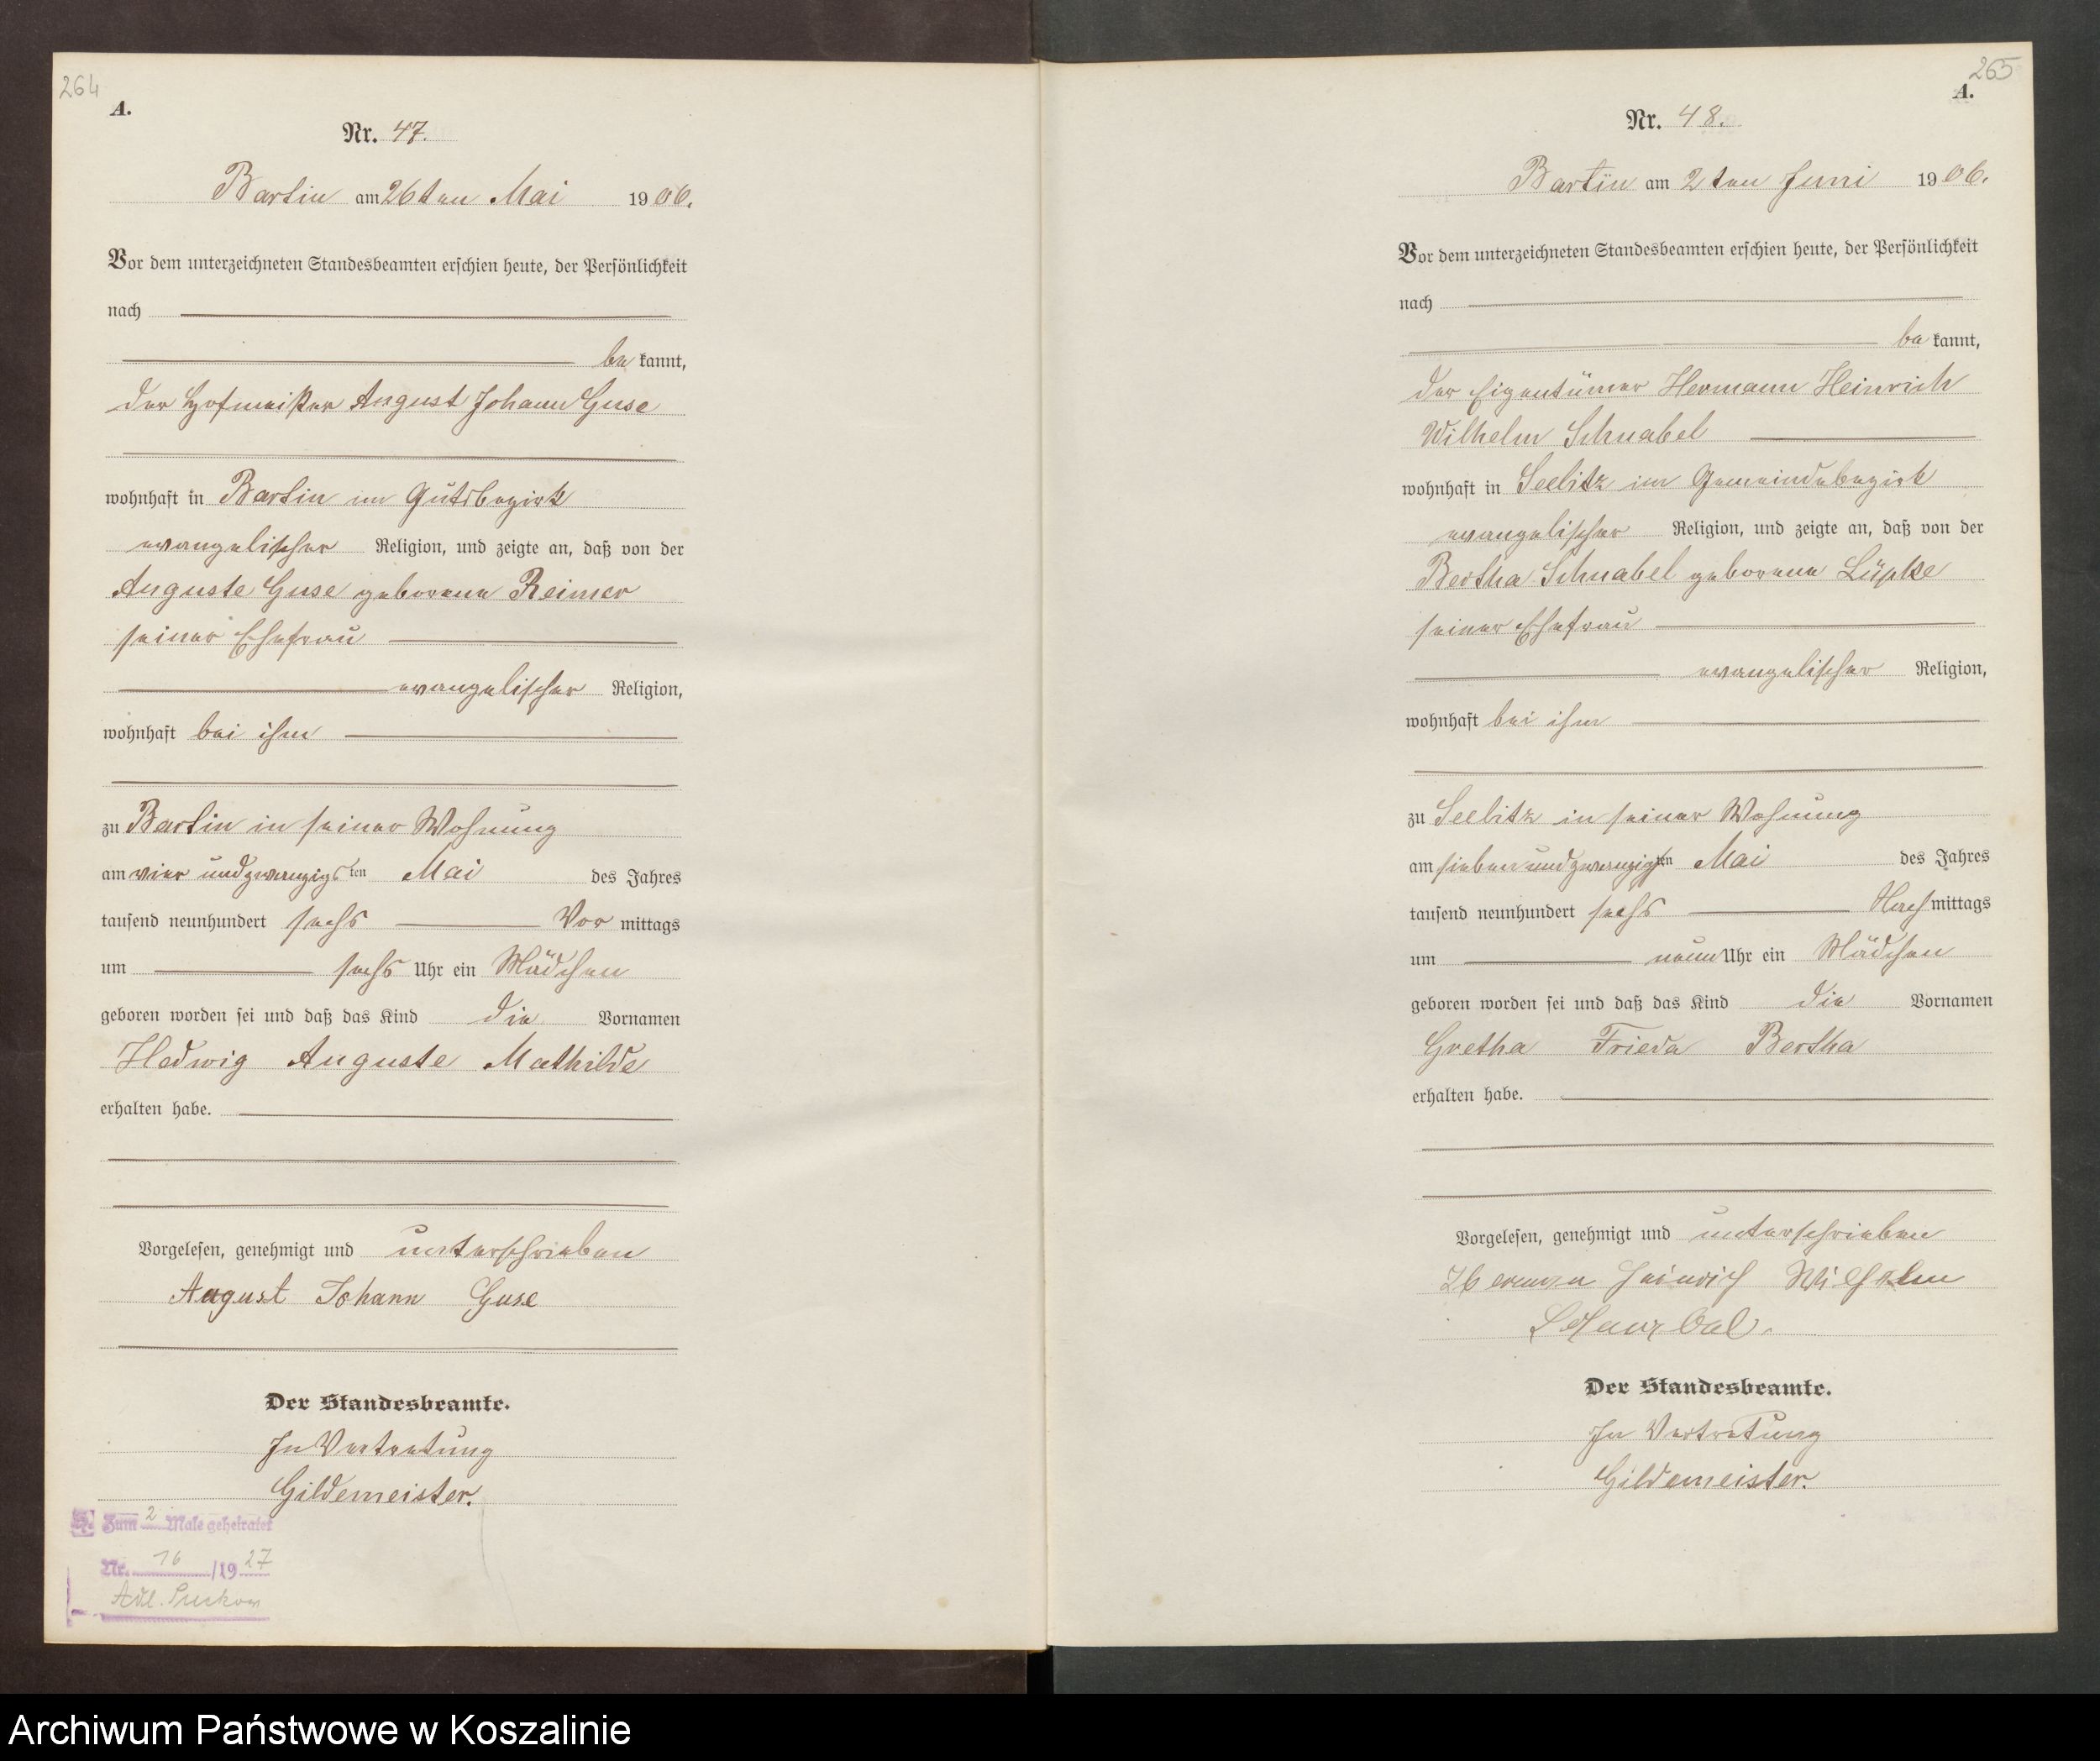 264
A.
Nr. 47.
Bartin am 26ten Mai 1906.
Vor dem unterzeichneten Standesbeamten erschien heute, der Persönlichkeit
nach
be kannt,
der Hofmeister August Johann Guse
wohnhaft in Bartin im Gutsbezirk
evangelischer Religion, und zeigte an, daß von der
Auguste Guse geborene Reimer
seiner Ehefrau
evangelischer Religion,
wohnhaft bei ihm
zu Bartin in seiner Wohnung
am vier und zwanzigsten Mai des Jahres
tausend neunhundert sechs Vor mittags
um sechs Uhr ein Mädchen
geboren worden sei und daß das Kind die Vornamen
Hedwig Auguste Mathilde
erhalten habe.
Vorgelesen, genehmigt und unterschrieben
August Johann Guse
Der Standesbeamte.
In Vertretung
Gildemeister.
Zum 2 Male geheiratet
Nr. 16/1927
Adl. Suckow
265
A.
Nr. 48.
Bartin am 2ten Juni 1906.
Vor dem unterzeichneten Standesbeamten erschien heute, der Persönlichkeit
nach
be kannt,
der Eigentümer Hermann Heinrich
Wilhelm Schnabel
wohnhaft in Seelitz im Gemeindebezirk
evangelischer Religion, und zeigte an, daß von der
Bertha Schnabel geborene Lüpke
seiner Ehefrau
evangelischer Religion,
wohnhaft bei ihm
zu Seelitz in seiner Wohnung
am sieben und zwanzigsten Mai des Jahres
tausend neunhundert sechs Nach mittags
um neun Uhr ein Mädchen
geboren worden sei und daß das Kind die Vornamen
Gretha Frieda Bertha
erhalten habe.
Vorgelesen, genehmigt und unterschrieben
Hermann Heinrich Wilhelm
Schnabel.
Der Standesbeamte.
In Vertretung
Gildemeister.
Archiwum Państwowe w Koszalinie